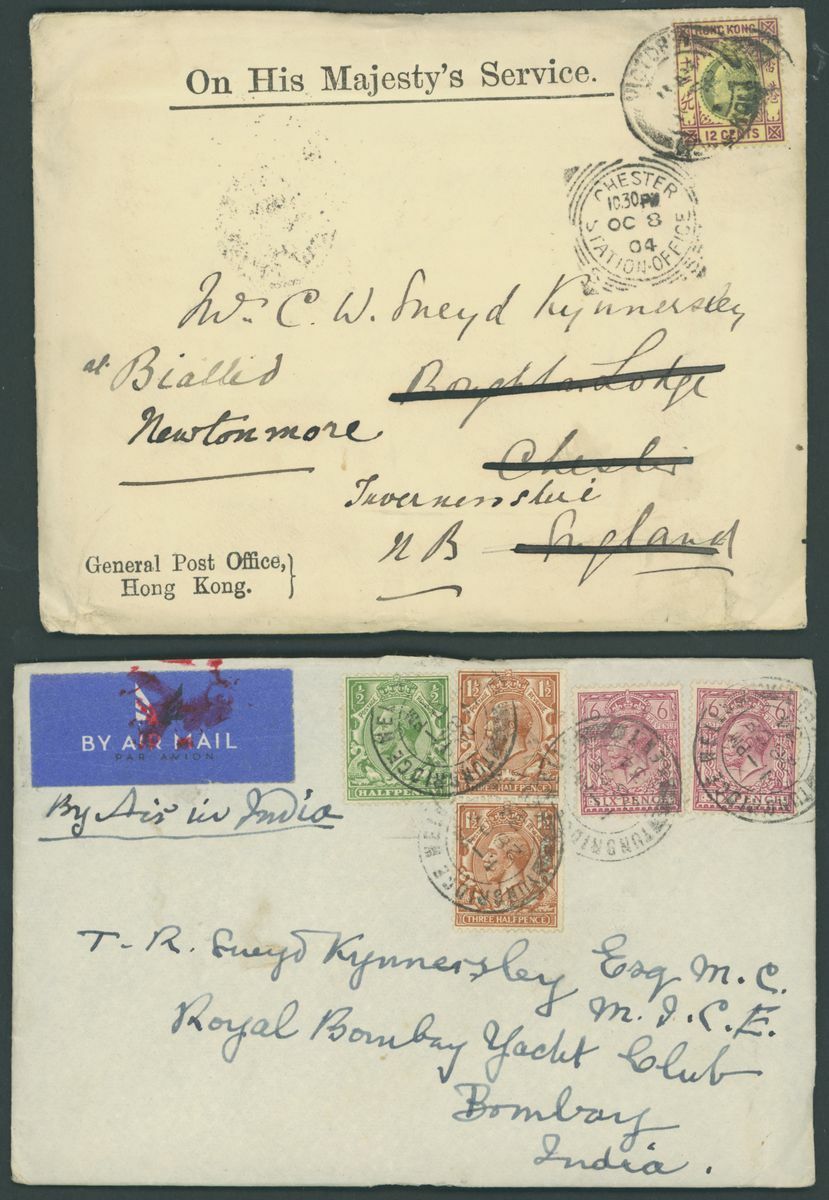 On His Majesty's Service.
HONG KONG
12 CENTS
VICTORIA
CHESTER
10.30PM
OC 8
04
STATION-OFFICE
Mr C. W. Sneyd Kynnersley
at Biallid
Boughton Lodge
Newtonmore
Chester
Invernessshire
N B England
General Post Office,
Hong Kong.
BY AIR MAIL
PAR AVION
By Air in India
½ ½
HALFPENNY
1½ 1½
THREE HALFPENCE
6 6
SIX PENCE
6
PENCE
1½
THREE HALFPENCE
TUNBRIDGE WELLS
T. R. Sneyd Kynnersley Esq M.C.
M.I.C.E.
Royal Bombay Yacht Club
Bombay
India.